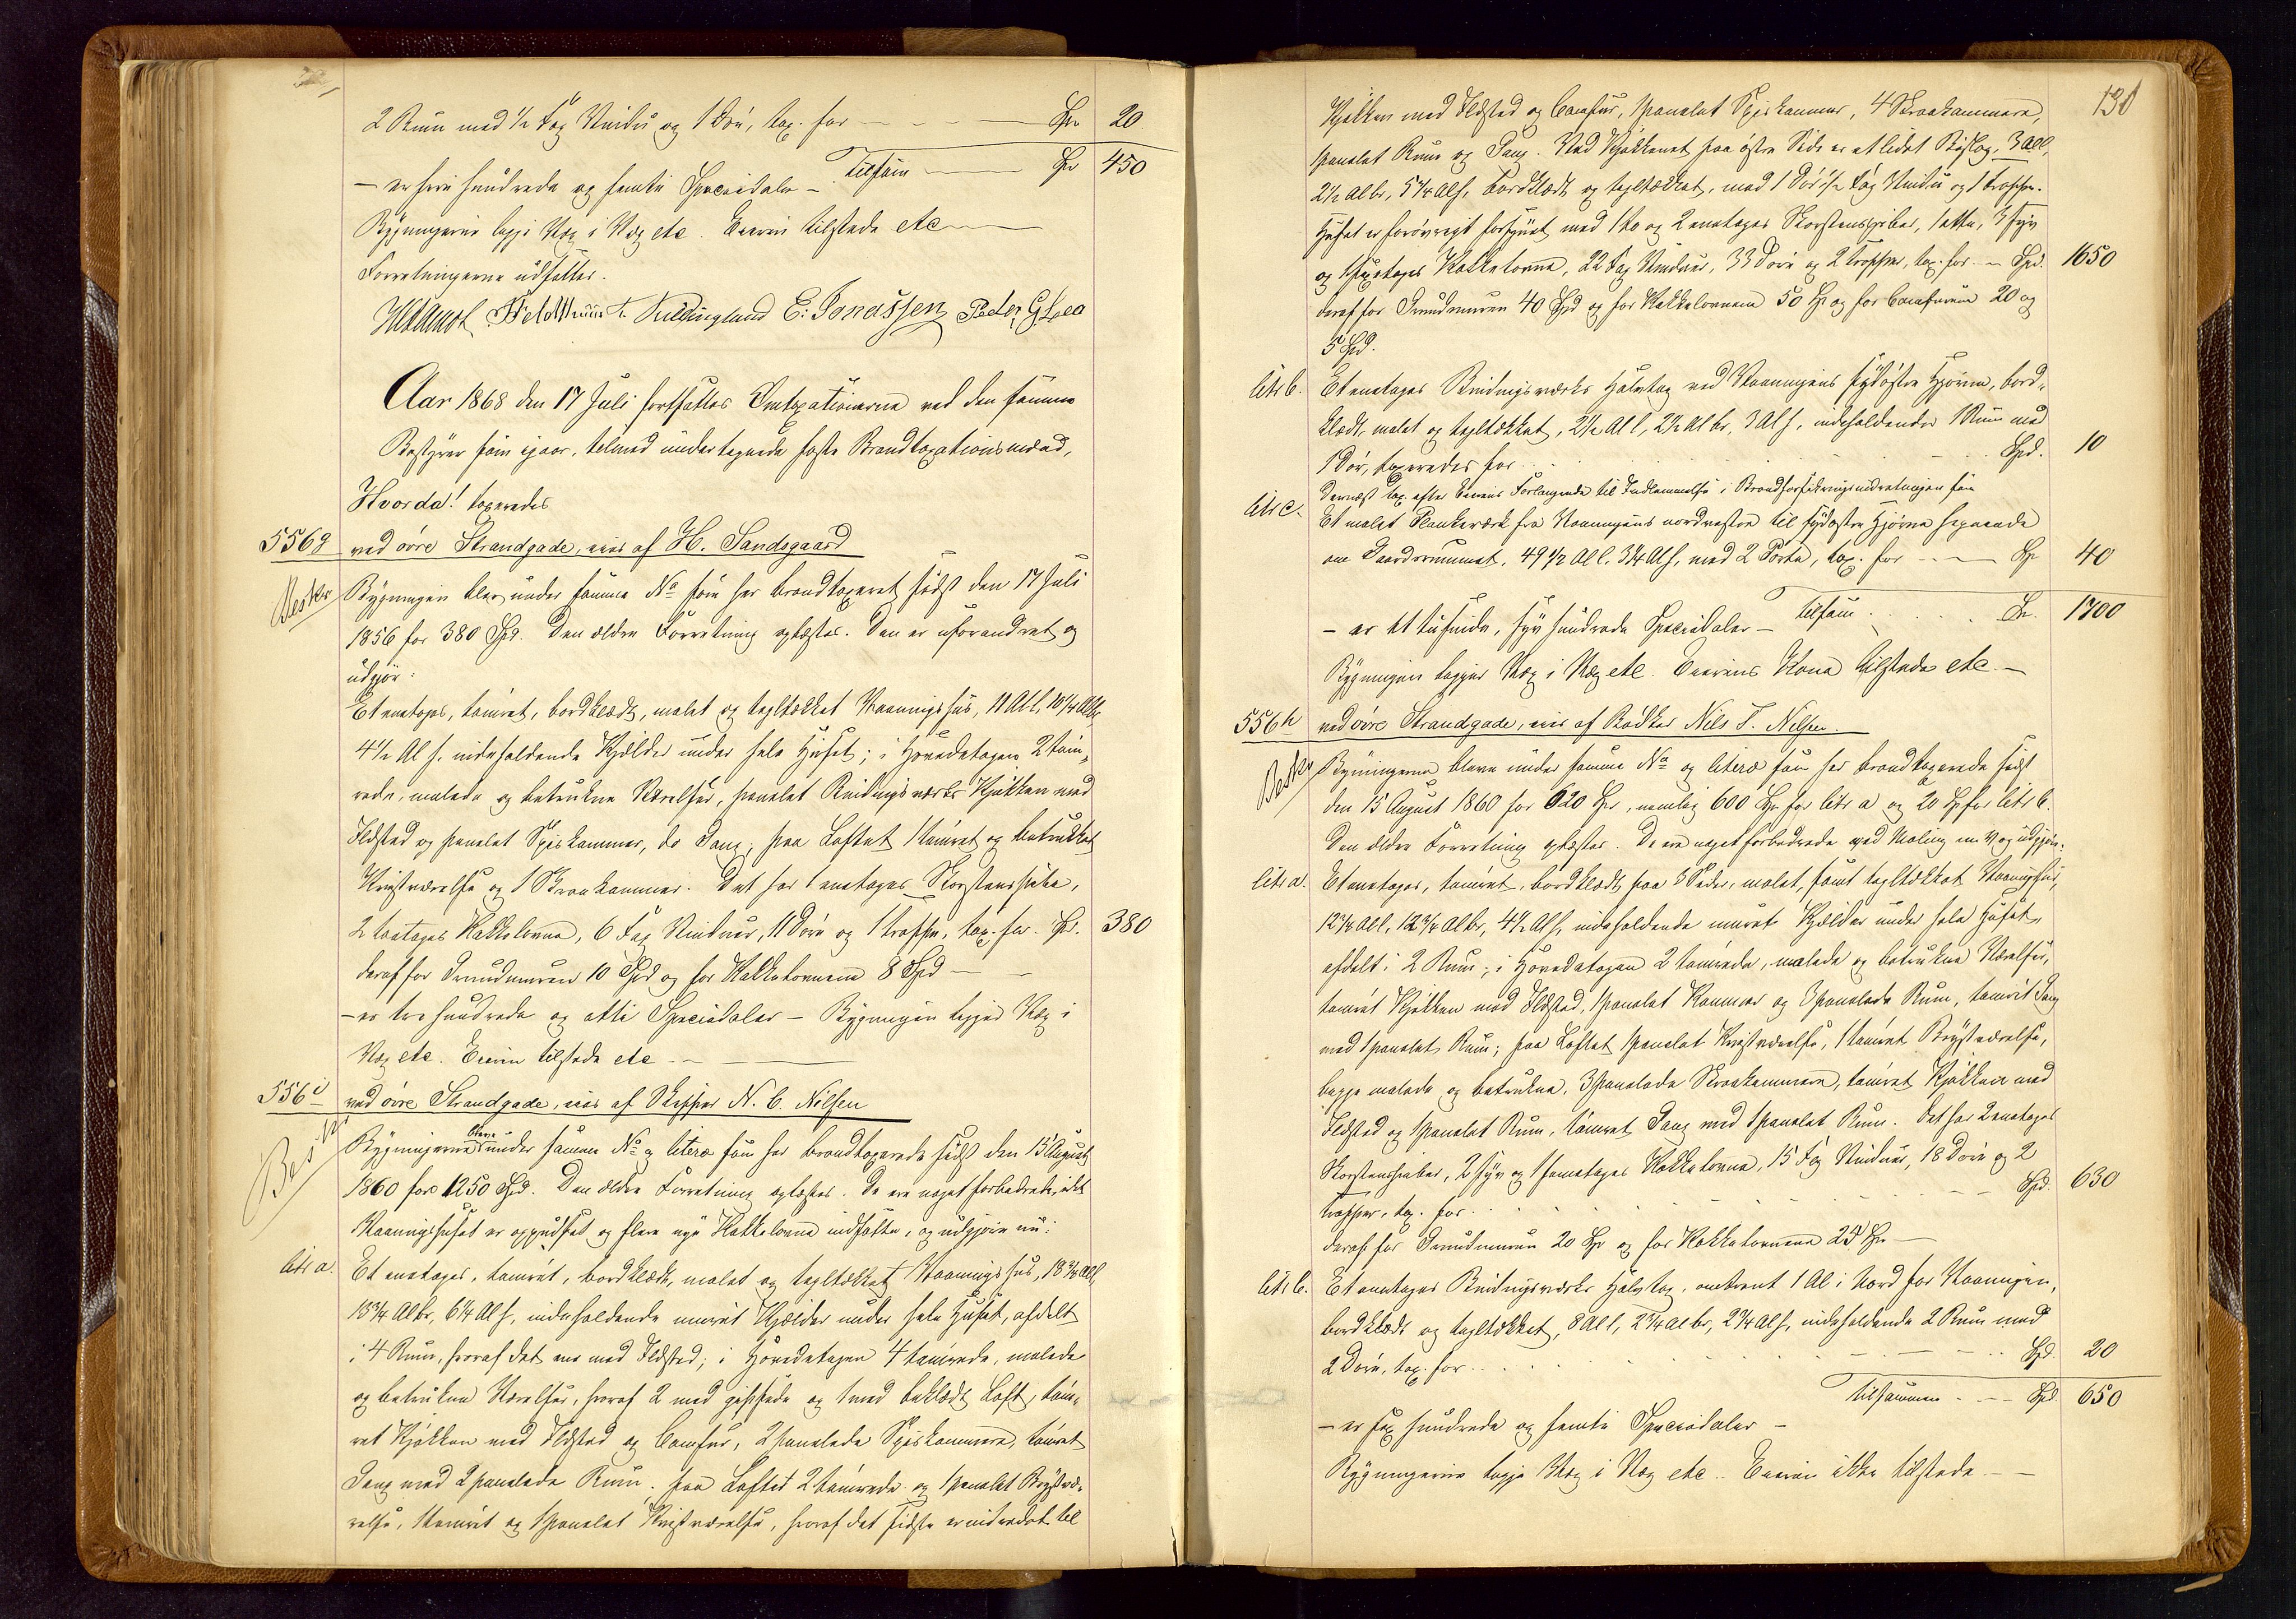 2 Rum med 1/2 Fag Vindu og 1 Dör, tax. for — Spd 20
Tilsam — Spd 450
– er fire hundrede og femti Speciedaler –
Bygningerne ligge Væg i Væg etc. Eieren tilstede etc
Forretningerne udsattes.
E. Jonassen Peder G. Lea
Aar 1868 den 17 Juli fortsattes Omtaxationerne ved den samme
Bestyrer som igaar, tilmed undertegnede faste Brandtaxationsmænd,
Hvorda! taxeredes
556g ved övre Strandgade, eies af H. Sandsgaard
Beskr Bygningen blev under samme No som her brandtaxeret sidst den 17 Juli
1856 for 380 Spd. Den ældre Forretning oplæstes. Den er uforandret og
udgjör:
Et enetages, tömret, bordklædt, malet og tegltækket Vaaningshus, 11 Al l, 10 1/4 Al br,
4 1/2 Al h. indeholdende Kjelder under hele Huset; i Hovedetagen 2 töm-
rede, malede og betrukne Værelser, panelet Bindingsværks Kjökken med
Ildsted og panelet Spiskammer, do Gang; paa Loftet 1 tömret og betrukket
Kvistværelse og 1 Skraakammer. Det har 1 enetages Skorstenspibe,
2 toetages Kakkelovne, 6 Fag Vinduer, 11 Döre og 1 Trappe, tax. for Spd. 380
deraf for Grundmuren 10 Spd og for Kakkelovnene 8 Spd —
– er tre hundrede og otti Speciedaler – Bygningen ligger Væg i
Væg etc. Eieren tilstede etc —
556i ved övre Strandgade, eies af Skipper N. C. Nilsen
Beskr Bygningerne bleve under samme No og litera som her brandtaxerede sidst den 15 August
1860 for 1250 Spd. Den ældre Forretning oplæstes. De ere noget forbedrede, idet
Vaaningshuset er oppudset og flere nye Kakkelovne indsatte, og udgjöre nu:
litr a. Et enetages, tömret, bordklædt, malet og tegltækket Vaaningshus, 18 3/4 Al l,
13 3/4 Al br, 6 1/4 Al h, indeholdende muret Kjælder under hele Huset, afdelt
i 4 Rum, hvoraf det ene med Ildsted; i Hovedetagen 4 tömrede, malede
og betrukne Værelser, hvoraf 2 med gipsede og 1 med beklædt Loft, töm-
ret Kjökken med Ildsted og Comfur, 2 panelede Spiskammere, tömret
Gang med 2 panelede Rum. paa Loftet 2 tömrede og 1 panelet Brystvæ-
relse, 1 tömret og 1 panelet Kvistværelse, hvoraf det sidste er indredet til
130
Kjökken med Ildsted og Comfur, 1 panelet Spiskammer, 4 Skraakammere,
1 panelet Rum og Gang. Ved Kjökkenet paa östre Side er et lidet Bislag, 3 Al l,
2 1/2 Al br, 5 1/4 Al h, bordklædt og tegltækket, med 1 Dör, 1/2 Fag Vindu og 1 Trappe.
Huset er forövrigt forsynet med 1 to og 2 enetages Skorstenspiber, 1 otte, 3 fyr
og 1 Kakkelovne, 22 Fag Vinduer, 33 Döre og 2 Trapper, tax. for – Spd. 1650
deraf for Grundmuren 40 Spd og for Kakkelovnene 50 Spd og for Comfurene 20 og
5 Spd.
litr b. Et enetages Bindingsværks Halvtag ved Vaaningens sydöstre Hjörne, bord-
klædt, malet og tegltækket, 2 1/2 Al l, 2 1/2 Al br, 3 Al h, indeholdende 1 Rum med
1 Dör, taxeredes for Spd. 10
Dernæst tax. efter Eierens Forlangende til Indlemmelse i Brandforsikringsindretningen som
litr c. Et malet Plankeværk fra Vaaningens nordvestre til sydöstre Hjörne
om Gaardsrummet, 49 1/2 Al l. 3 1/4 Al h, med 2 Porte, tax. for — Sp 40
Tilsam Sp. 1700
– er et tusinde, syv hundrede Speciedaler –
Bygningen ligger Væg i Væg etc. Eierens Kone tilstede etc. –
556h ved övre Strandgade, eies af Bödker Nils T. Nilsen.
Beskr Bygningerne bleve under samme No og litera som her brandtaxerede sidst
den 15 August 1860 for 620 Spd, nemlig 600 Spd for litr a og 20 Sp for litr b.
Den ældre Forretning oplæstes. De ere noget forbedrede ved Maling m.v. og udgjöre:
litr a. Et enetages, tömret, bordklædt paa 3 Sider, malet, samt tegltækket Vaaningshus,
12 3/4 Al l, 12 3/4 Al br, 4 1/2 Al h, indeholdende muret Kjælder under hele Huset,
afdelt i 2 Rum; i Hovedetagen 2 tömrede, malede og betrukne Værelser,
tömret Kjökken med Ildsted, 1 panelet Kammer og 3 panelede Rum, tömret Gang
med 1 panelet Rum; paa Loftet 1 panelet Kvistværelse, 1 tömret Brystværelse,
begge malede og betrukne, 3 panelede Skraakammere, tömret Kjökken med
Ildsted og 1 panelet Rum, tömret Gang med 1 panelet Rum. Det har 2 enetages
Skorstenspiber, 2 fyr og 1 femetages Kakkelovne, 15 Fag Vinduer, 18 Döre og 2
Trapper, tax. for Spd. 630
deraf for Grundmuren 20 Spd og for Kakkelovnene 25 Spd —
litr b. Et enetages Bindingsværks Halvtag, omtrent 1 Al i Nord for Vaaningen,
bordklædt og tegltækket, 8 Al l, 2 3/4 Al br, 2 3/4 Al h, indeholdende 2 Rum med
2 Döre, tax. for Spd. 20
Tilsammen – Spd. 650
– er sex hundrede og femti Speciedaler –
Bygningerne ligge Væg i Væg etc. Eieren ikke tilstede —